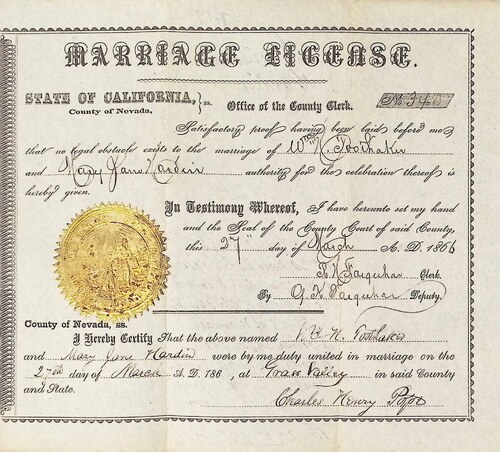 MARRIAGE LICENSE.
STATE OF CALIFORNIA, } ss. Office of the County Clerk. No. 340
County of Nevada,
Satisfactory proof having been laid before me
that no legal obstacle exists to the marriage of Wm N. Toothaker
and Mary Jane Hardin authority for the celebration thereof is
hereby given.
In Testimony Whereof, I have hereunto set my hand
and the Seal of the County Court of said County,
this 27th day of March A. D. 1866
Farquhar Clerk.
By G. K. Farquhar Deputy.
County of Nevada, ss.
I Hereby Certify That the above named N. Toothaker
and Mary Jane Hardin were by me duly united in marriage on the
27th day of March A. D. 186 , at Grass Valley in said County
and State.
Charles Henry